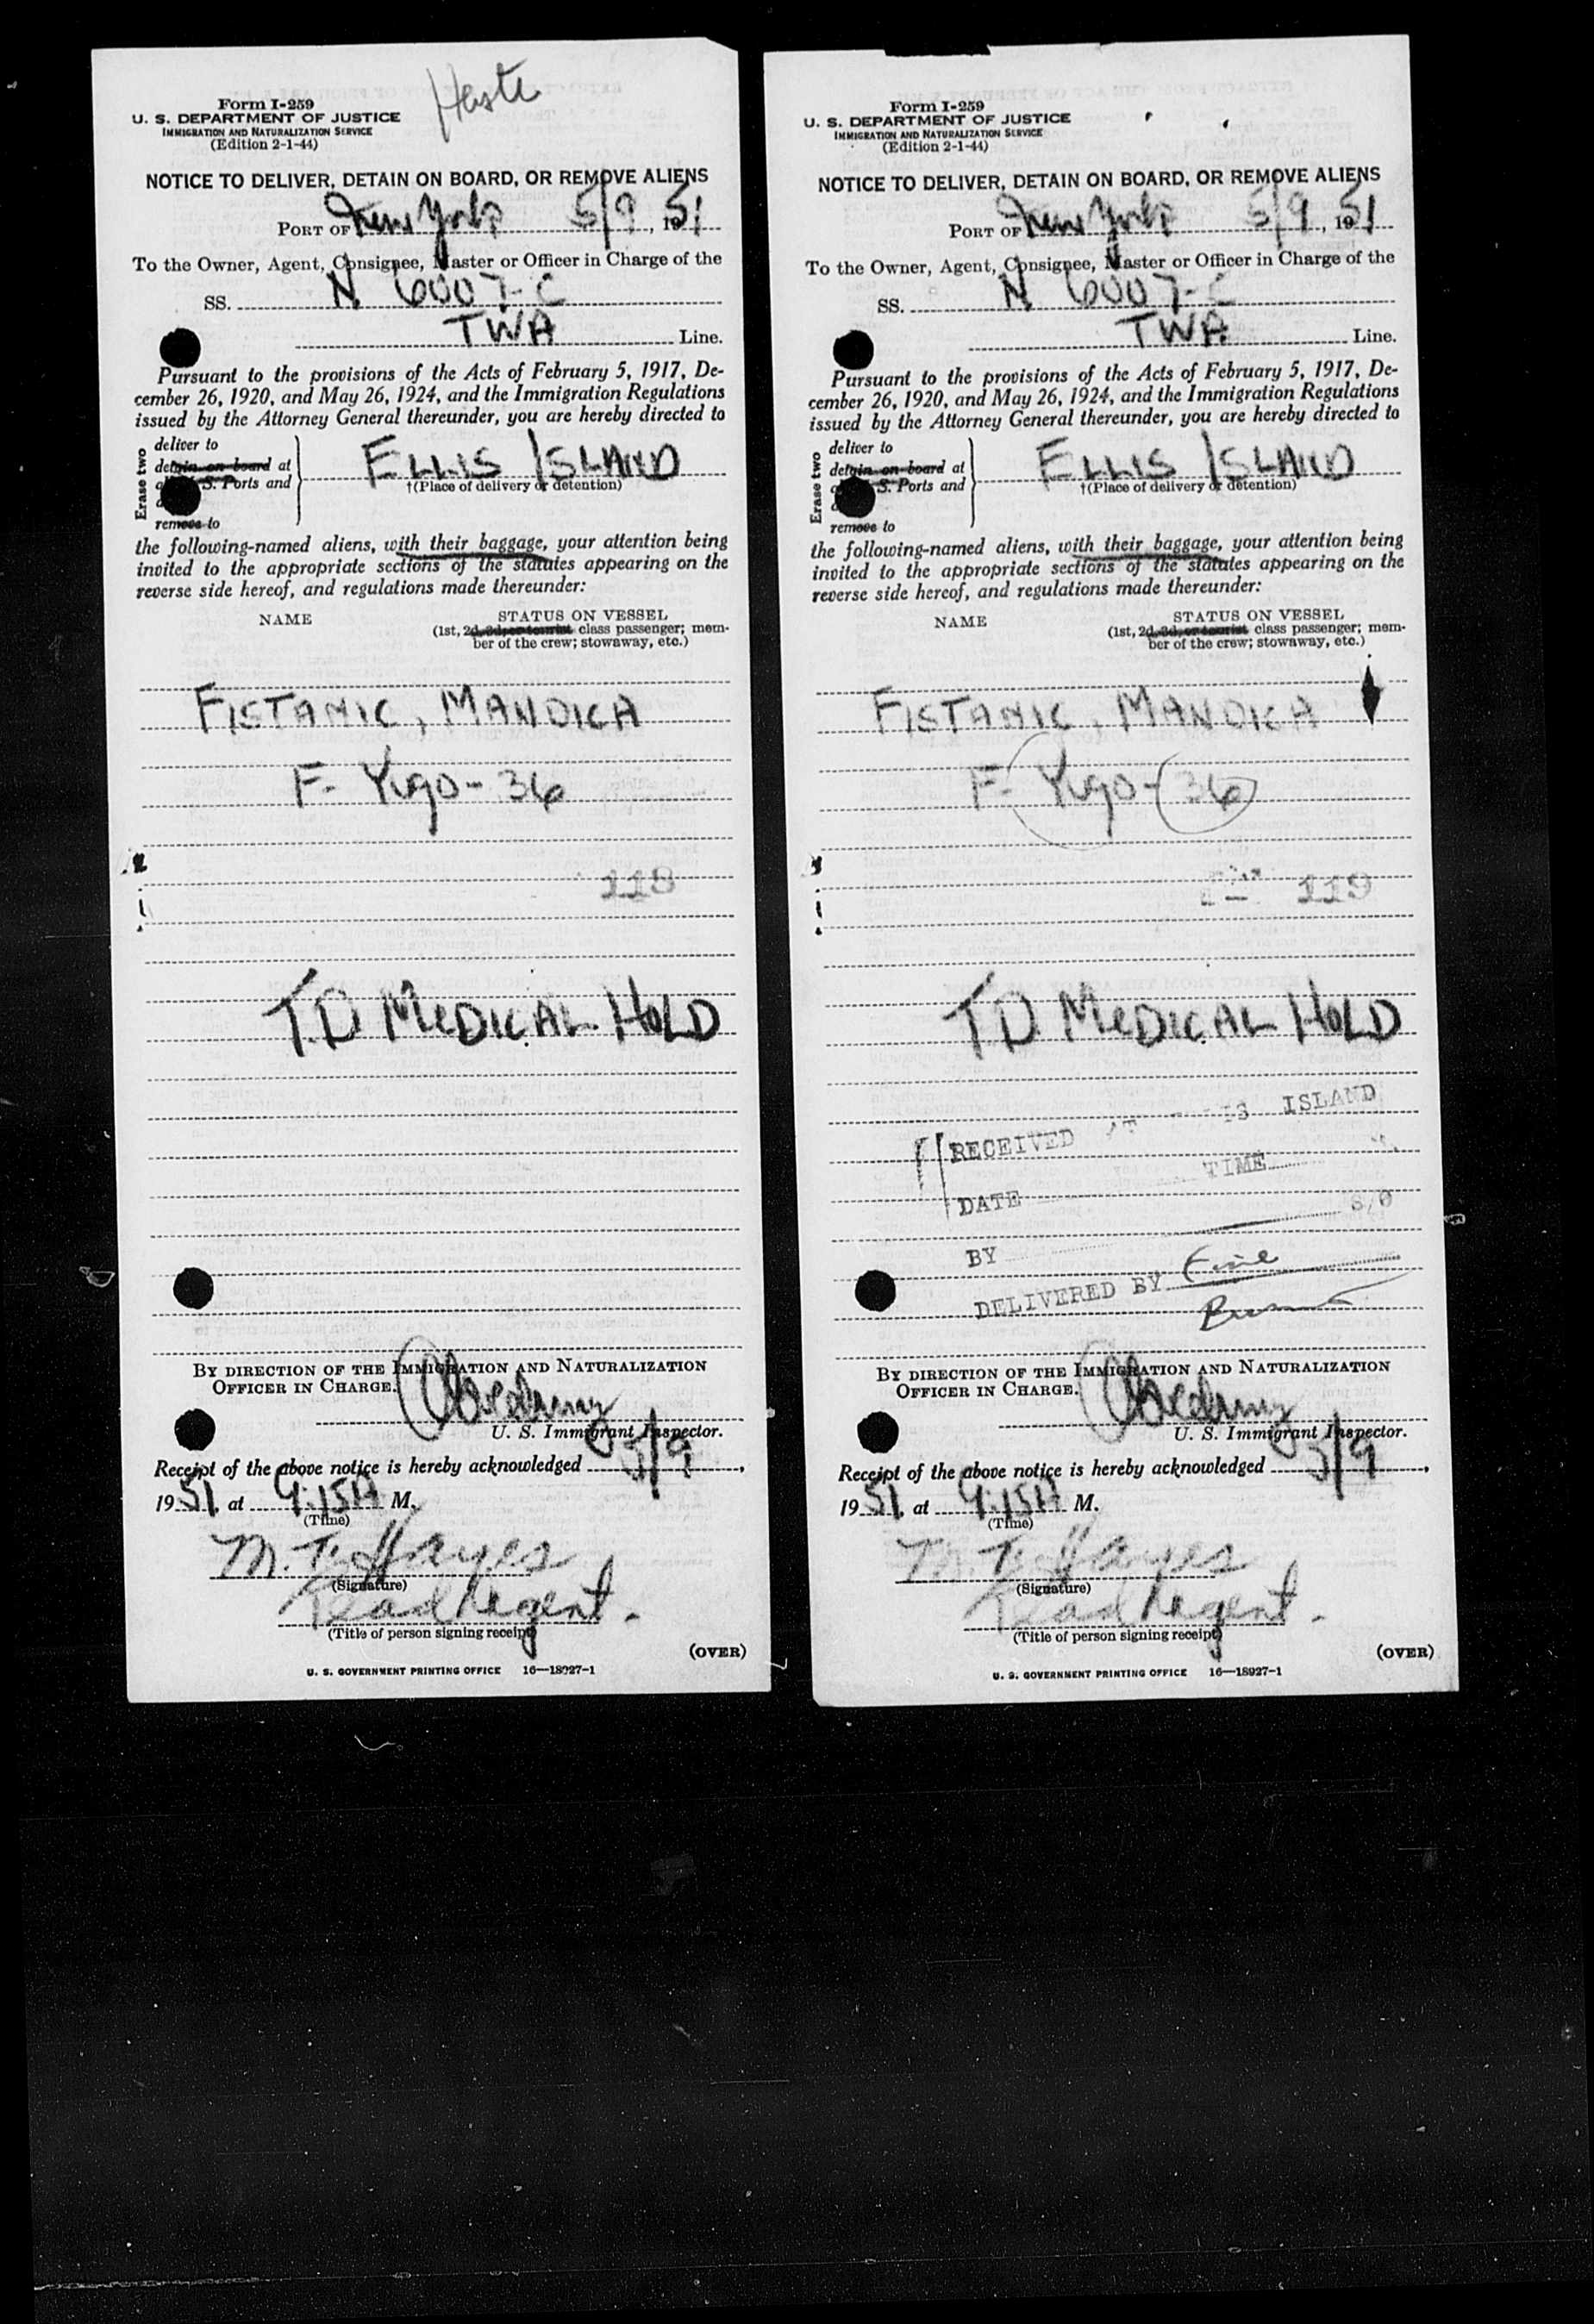 Haste
Form I-259
U. S. DEPARTMENT OF JUSTICE
IMMIGRATION AND NATURALIZATION SERVICE
(Edition 2-1-44)
NOTICE TO DELIVER, DETAIN ON BOARD, OR REMOVE ALIENS
PORT OF New York 5/9, 1951
To the Owner, Agent, Consignee, Master or Officer in Charge of the
SS. N 6007-C
TWA Line.
Pursuant to the provisions of the Acts of February 5, 1917, De-
cember 26, 1920, and May 26, 1924, and the Immigration Regulations
issued by the Attorney General thereunder, you are hereby directed to
Erase two
deliver to
detain on board at
S. Ports and
remove to
ELLIS ISLAND
†(Place of delivery or detention)
the following-named aliens, with their baggage, your attention being
invited to the appropriate sections of the statutes appearing on the
reverse side hereof, and regulations made thereunder:
NAME STATUS ON VESSEL
(1st, 2d, 3d, or tourist class passenger; mem-
ber of the crew; stowaway, etc.)
FISTANIC, MANDICA
F- Yugo- 36
118
TD MEDICAL HOLD
BY DIRECTION OF THE IMMIGRATION AND NATURALIZATION
OFFICER IN CHARGE.
U. S. Immigrant Inspector.
Receipt of the above notice is hereby acknowledged 5/9,
1951, at 9:15A M.
(Time)
M. T. Hayes
(Signature)
Agent.
(Title of person signing receipt)
(OVER)
U. S. GOVERNMENT PRINTING OFFICE 16—18927-1
Form I-259
U. S. DEPARTMENT OF JUSTICE
IMMIGRATION AND NATURALIZATION SERVICE
(Edition 2-1-44)
NOTICE TO DELIVER, DETAIN ON BOARD, OR REMOVE ALIENS
PORT OF New York 5/9, 1951
To the Owner, Agent, Consignee, Master or Officer in Charge of the
SS. N 6007-C
TWA Line.
Pursuant to the provisions of the Acts of February 5, 1917, De-
cember 26, 1920, and May 26, 1924, and the Immigration Regulations
issued by the Attorney General thereunder, you are hereby directed to
Erase two
deliver to
detain on board at
S. Ports and
remove to
ELLIS ISLAND
†(Place of delivery or detention)
the following-named aliens, with their baggage, your attention being
invited to the appropriate sections of the statutes appearing on the
reverse side hereof, and regulations made thereunder:
NAME STATUS ON VESSEL
(1st, 2d, 3d, or tourist class passenger; mem-
ber of the crew; stowaway, etc.)
FISTANIC, MANDICA
F- Yugo- 36
119
TD MEDICAL HOLD
RECEIVED AT ISLAND
DATE TIME
BY S/O
DELIVERED BY
BY DIRECTION OF THE IMMIGRATION AND NATURALIZATION
OFFICER IN CHARGE.
U. S. Immigrant Inspector.
Receipt of the above notice is hereby acknowledged 5/9,
1951, at 9:15A M.
(Time)
M. T. Hayes
(Signature)
Agent.
(Title of person signing receipt)
(OVER)
U. S. GOVERNMENT PRINTING OFFICE 16—18927-1